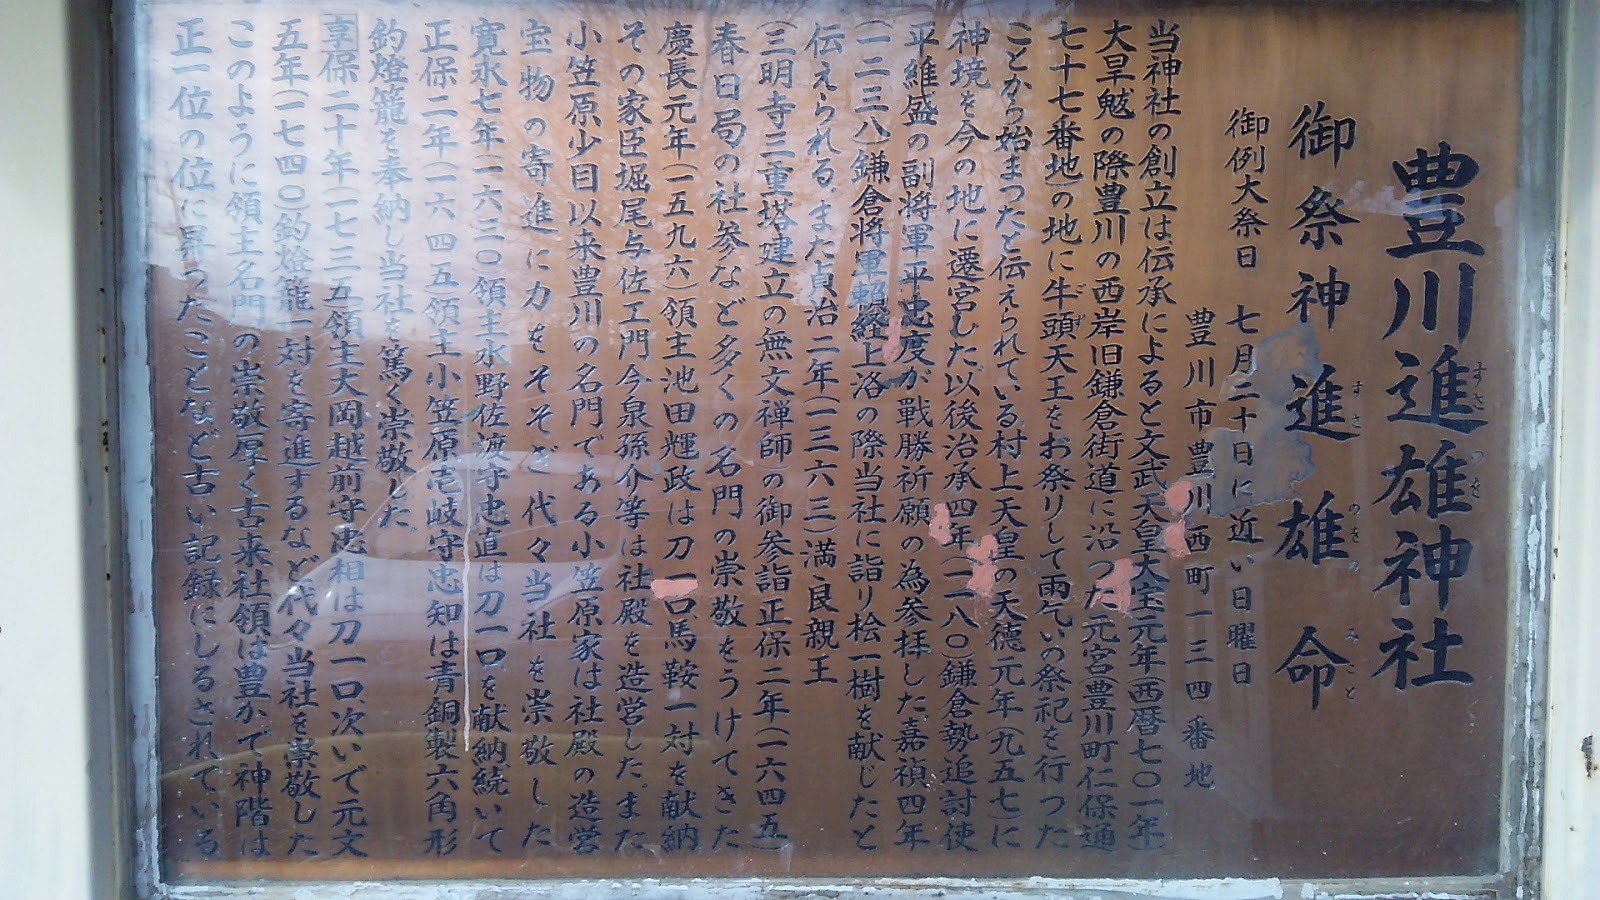 豊川進雄神社
すさのを
御祭神 進雄命
すさ のをの みこと
御例大祭日 七月二十日に近い日曜日
豊川市豊川西町一三四番地
当神社の創立は伝承によると文武天皇大宝元年(西暦七〇一年)
大旱魃の際豊川の西岸旧鎌倉街道に沿った元宮(豊川町仁保通
七十七番地)の地に牛頭天王をお祭りして雨乞いの祭祀を行った
ことから始まったと伝えられている。村上天皇の天徳元年(九五七)に
神境を今の地に遷宮した。以後治承四年(一一八〇)鎌倉勢追討使
平維盛の副将軍平忠度が戦勝祈願の為参拝した。嘉禎四年
(一二三八)鎌倉将軍頼経上洛の際当社に詣り桧一樹を献じたと
伝えられる。また貞治二年(一三六三)満良親王
(三明寺三重塔建立の無文禅師)の御参詣正保二年(一六四五)
春日局の社参など多くの名門の崇敬をうけてきた
慶長元年(一五九六)領主池田輝政は刀一口、馬鞍一対を献納
その家臣堀尾与佐エ門今泉孫介等は社殿を造営した。また
小笠原少目以来豊川の名門である小笠原家は社殿の造営
宝物の寄進に力をそそぎ代々当社を崇敬した
寛永七年(一六三〇)領主水野佐渡守忠直は刀一口を献納、続いて
正保二年(一六四五)領主小笠原壱岐守忠知は青銅製六角形
釣燈籠を奉納し当社を篤く崇敬した。
享保二十年(一七三五)領主大岡越前守忠相は刀一口、次いで元文
五年(一七四〇)釣燈籠一対を寄進するなど代々当社を崇敬した
このように領主名門の崇敬厚く古来社領は豊かで神階は
正一位の位に昇ったことなど古い記録にしるされている